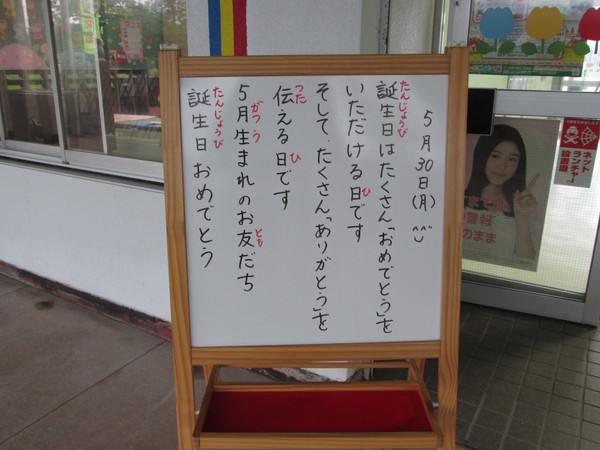 5月30日(月) ^^
誕生日はたくさん「おめでとう」を
たんじょうび
いただける日です
ひ
そして、たくさん「ありがとう」を
伝える日です
つた
ひ
5月生まれのお友だち
がつう
とも
誕生日おめでとう
たんじょうび
ネット
ランチャー
設置園
警報
のまま